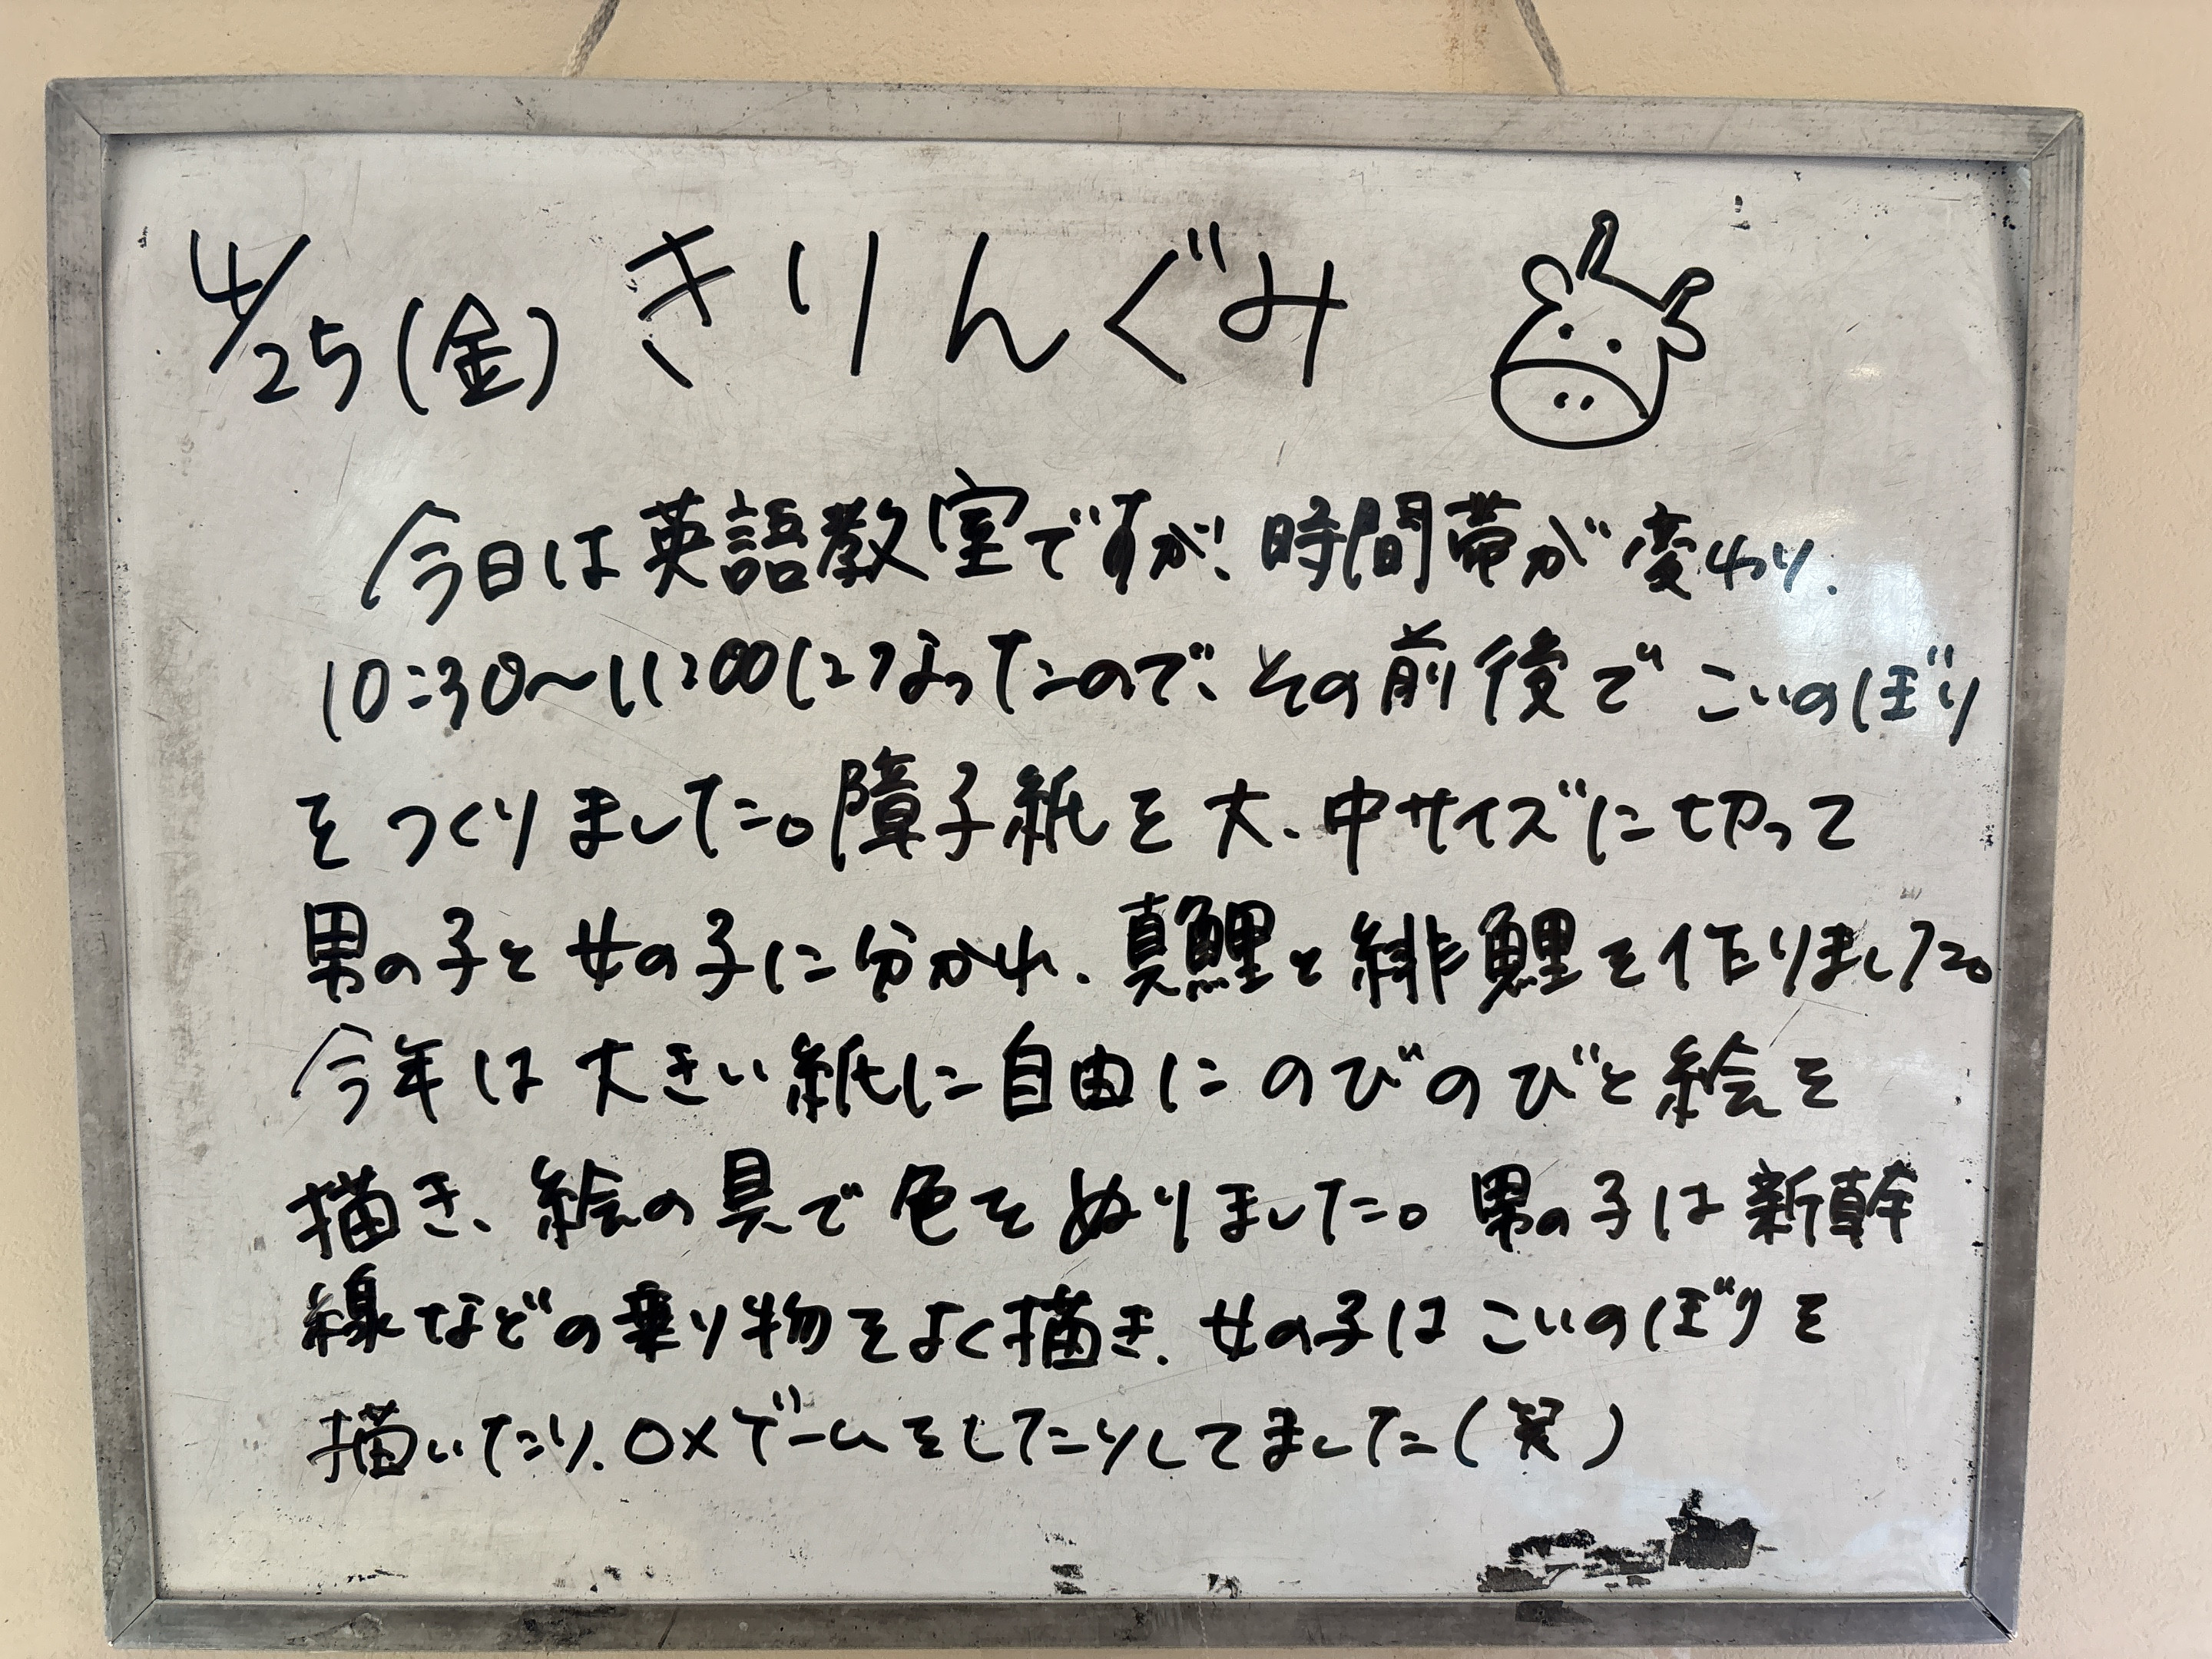 4/25(金) きりんぐみ
今日は英語教室ですが、時間帯が変わり、
10:30〜11:00になったので、その前後でこいのぼり
をつくりました。障子紙を大、中サイズに切って
男の子と女の子に分かれ、真鯉と緋鯉を作りました。
今年は大きい紙に自由にのびのびと絵を
描き、絵の具で色をぬりました。男の子は新幹
線などの乗り物をよく描き、女の子はこいのぼりを
描いたり、○×ゲームをしたりしてました(笑)